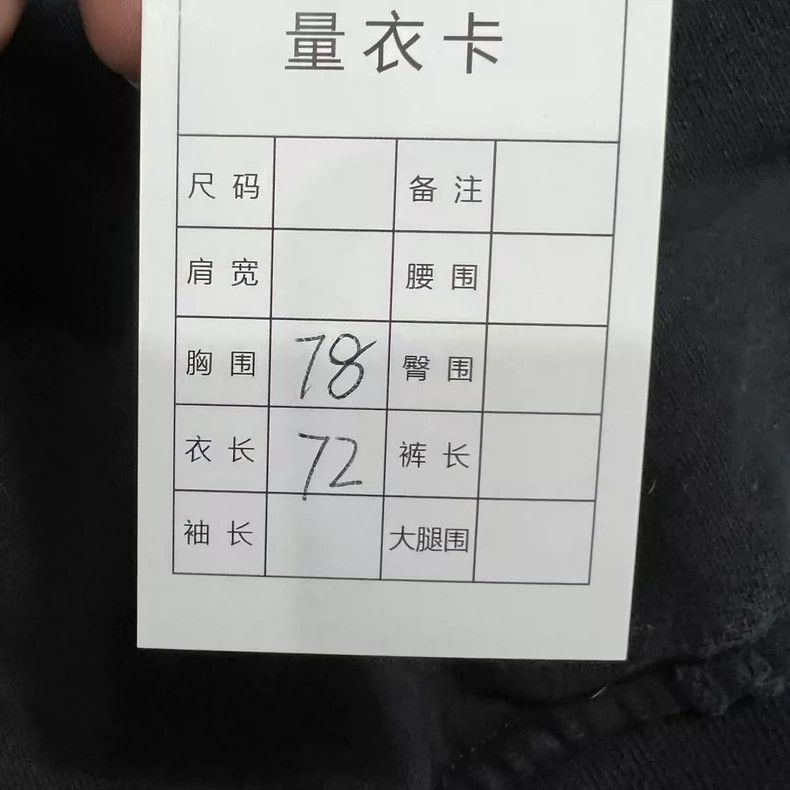 量衣卡
尺码 备注
肩宽 腰围
胸围 78 臀围
衣长 72 裤长
袖长 大腿围